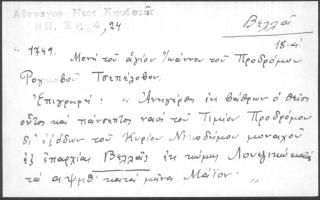 Βελλᾶ
ΗΠ. ΧΡ. 4, 24
18-α΄
" 1749.
Μονὴ τοῦ ἁγίου Ἰωάννου τοῦ Προδρόμου
Ρογκοβοῦ Τσεπέλοβον.
Ἐπιγραφή : " Ἀνηγέρθη ἐκ βάθρων ὁ θεῖος
οὗτος καὶ πάνσεπτος ναὸς τοῦ Τιμίου Προδρόμου
δι' ἐξόδων τοῦ Κυρίου Νικοδήμου μοναχοῦ
ἐξ ἐπαρχίας Βελλᾶς ἐκ κώμης
τὰ αψμθ΄ κατὰ μῆνα Μάϊον. "